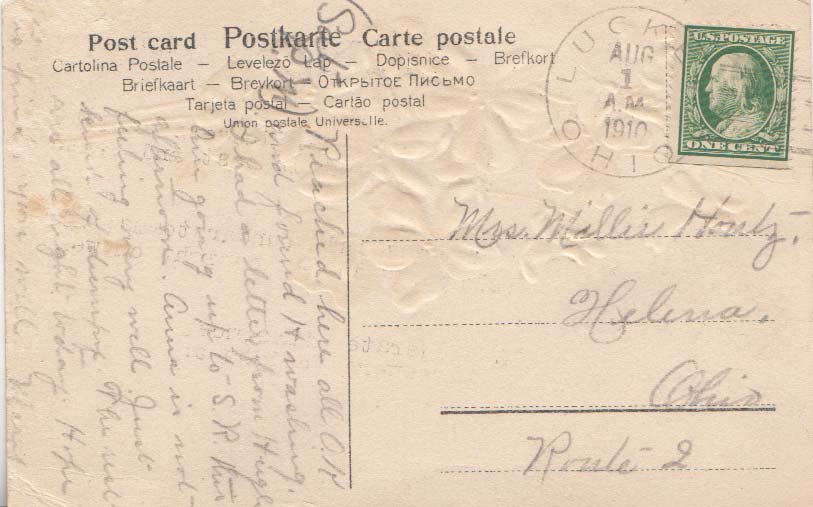 Post card Postkarte Carte postale
Cartolina Postale – Levelező Lap – Dopisnice – Brefkort
Briefkaart – Brevkort – Открытое Письмо
Tarjeta postal – Cartão postal
Union postale Universelle.
LUCKEY
AUG
1
A.M.
1910
OHIO
U.S. POSTAGE
ONE CENT
Reached here all O.K
and found H washing.
I had a letter from Hugh
Am going up to S. R. this
afternoon. Anna is not
feeling very well Just
kind of The rest
are all right today. Hope
you will
Mrs. Millie Hontz,
Helena,
Ohio
Route 2